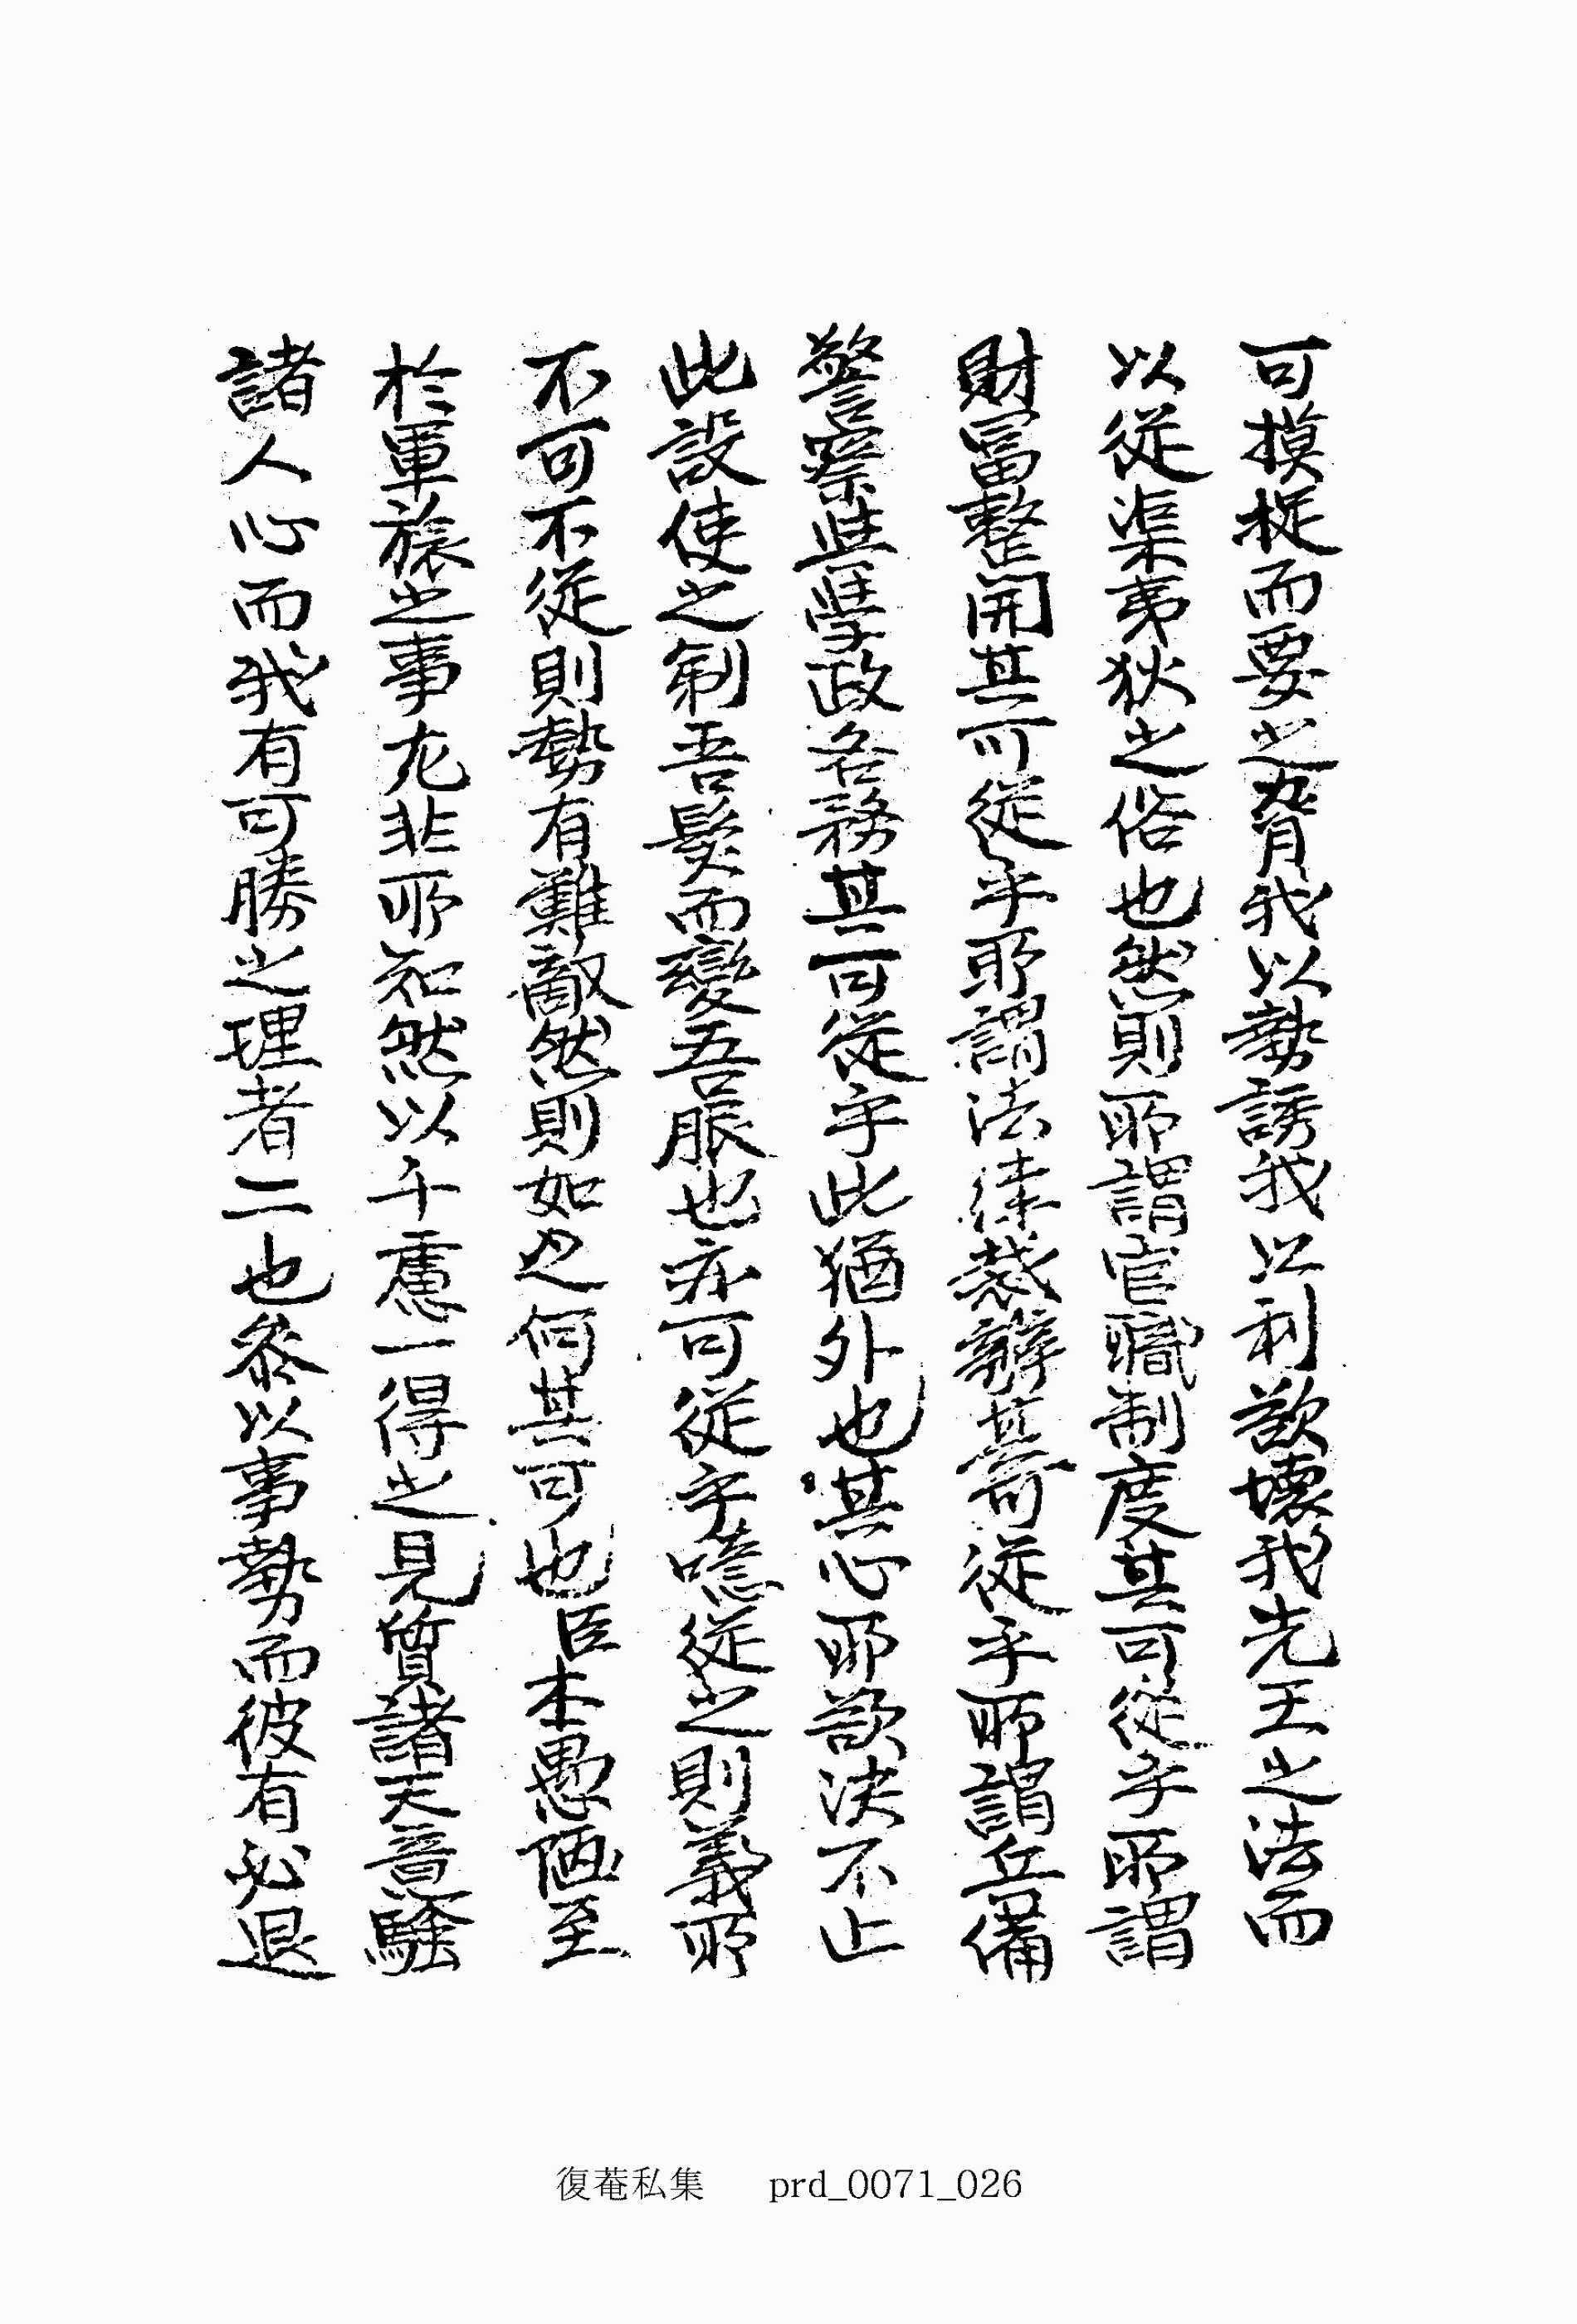 可摸捉而要之脅我以勢誘我以利欲壞我先王之法而
以從渠夷狄之俗也然則所謂官職制度其可從乎所謂
財冨整開其可從乎所謂法律裁辦其可從乎所謂兵備
警察些學政各務其可從乎此猶外也其心所欲決不止
此設使之制吾髮而變吾服也亦可從乎噫從之則義所
不可不從則勢有難敵然則如之何其可也臣本愚陋至
於軍旅之事尤非所知然以千慮一得之見質諸天音驗
諸人心而我有可勝之理者二也叅以事勢而彼有必退
復菴私集 prd_0071_026